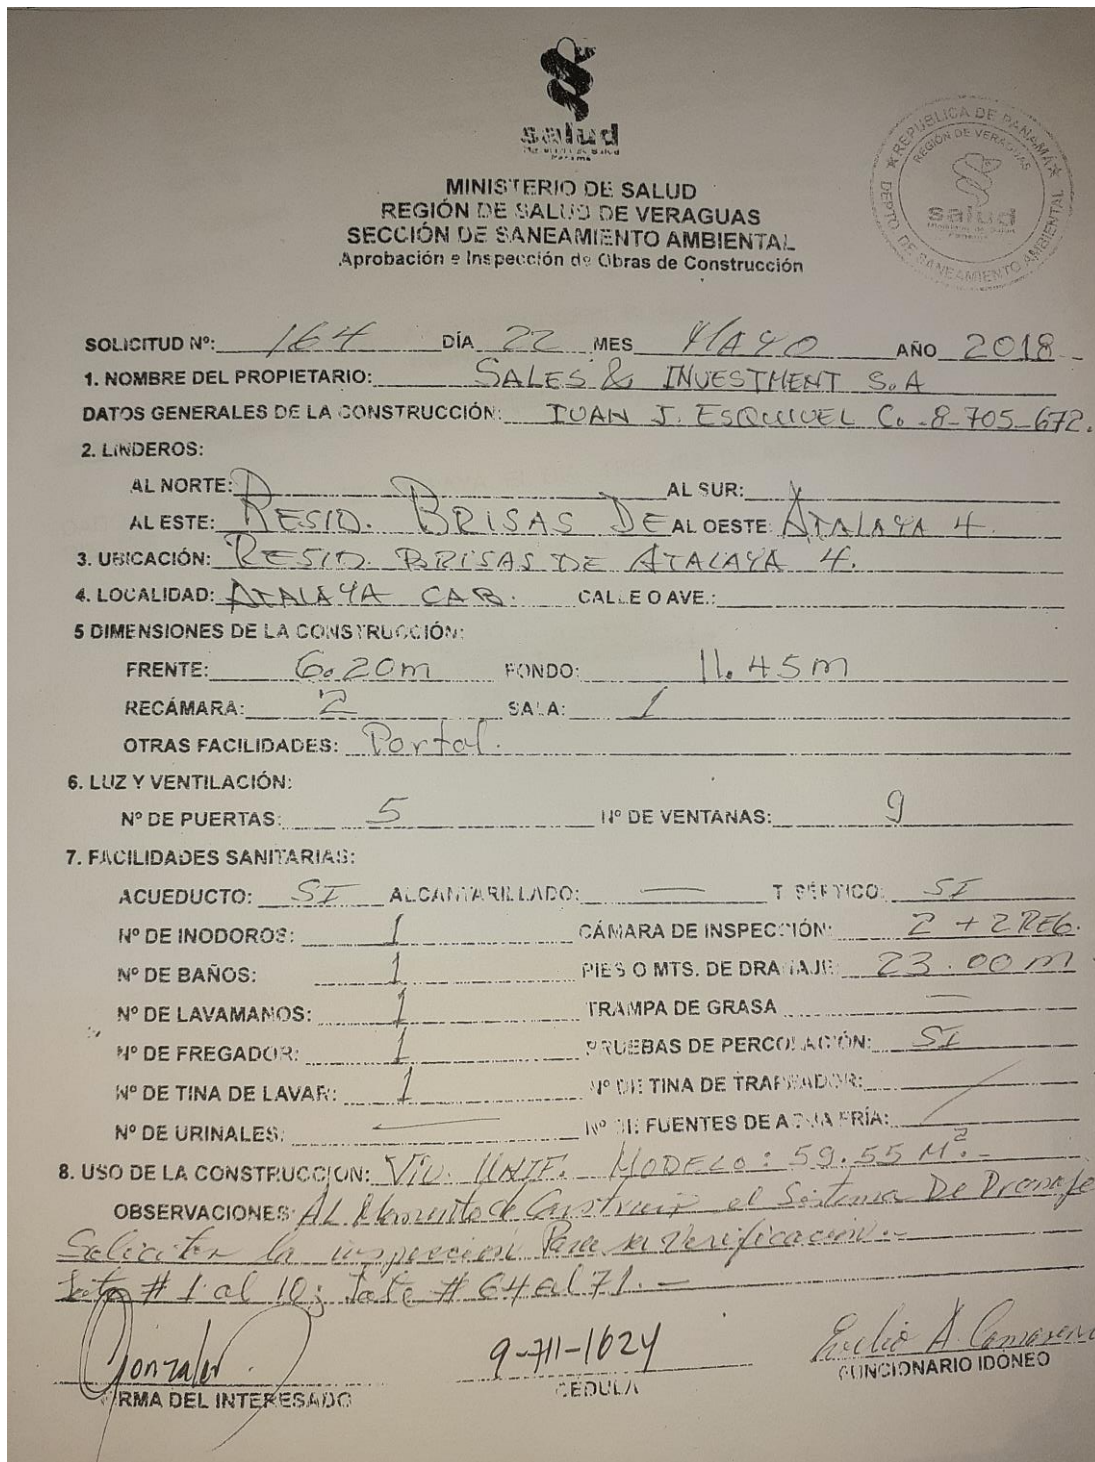 salud
Ministerio de Salud
Panamá
REPUBLICA DE PANAMÁ
REGIÓN DE VERAGUAS
salud
DEPTO. DE SANEAMIENTO AMBIENTAL
MINISTERIO DE SALUD
REGIÓN DE SALUD DE VERAGUAS
SECCIÓN DE SANEAMIENTO AMBIENTAL
Aprobación e Inspección de Obras de Construcción
SOLICITUD Nº: 164 DÍA 22 MES MAYO AÑO 2018
1. NOMBRE DEL PROPIETARIO: SALES & INVESTMENT S.A
DATOS GENERALES DE LA CONSTRUCCIÓN: IVAN J. ESQUIVEL C. 8-705-672.
2. LINDEROS:
AL NORTE: AL SUR:
AL ESTE: RESID. BRISAS DE AL OESTE: ATALAYA 4.
3. UBICACIÓN: RESID. BRISAS DE ATALAYA 4.
4. LOCALIDAD: ATALAYA CAB. CALLE O AVE.:
5 DIMENSIONES DE LA CONSTRUCCIÓN:
FRENTE: 6.20m FONDO: 11.45m
RECÁMARA: 2 SALA: 1
OTRAS FACILIDADES: Portal.
6. LUZ Y VENTILACIÓN:
Nº DE PUERTAS: 5 Nº DE VENTANAS: 9
7. FACILIDADES SANITARIAS:
ACUEDUCTO: SI ALCANTARILLADO: — T. SÉPTICO: SI
Nº DE INODOROS: 1 CÁMARA DE INSPECCIÓN: 2 + 2 REG.
Nº DE BAÑOS: 1 PIES O MTS. DE DRANAJE: 23.00 m
Nº DE LAVAMANOS: 1 TRAMPA DE GRASA —
Nº DE FREGADOR: 1 PRUEBAS DE PERCOLACIÓN: SI
Nº DE TINA DE LAVAR: 1 Nº DE TINA DE TRAPEADOR:
Nº DE URINALES: — Nº DE FUENTES DE AGUA FRÍA: /
8. USO DE LA CONSTRUCCION: VIV. UNIF. MODELO: 59.55 M².-
OBSERVACIONES: AL Momento de Construir el Sistema De Drenaje
Solicitar la inspeccion Para su Verificacion.-
Lote # 1 al 10; Lote # 64 al 71.-
Gonzalez 9-711-1624
FIRMA DEL INTERESADO CEDULA FUNCIONARIO IDONEO